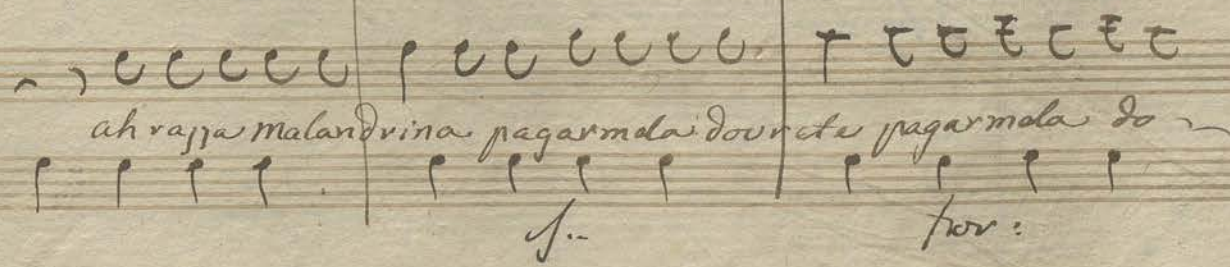 ah razza malandrina pagarmela dovrete pagarmela do
f.. for: